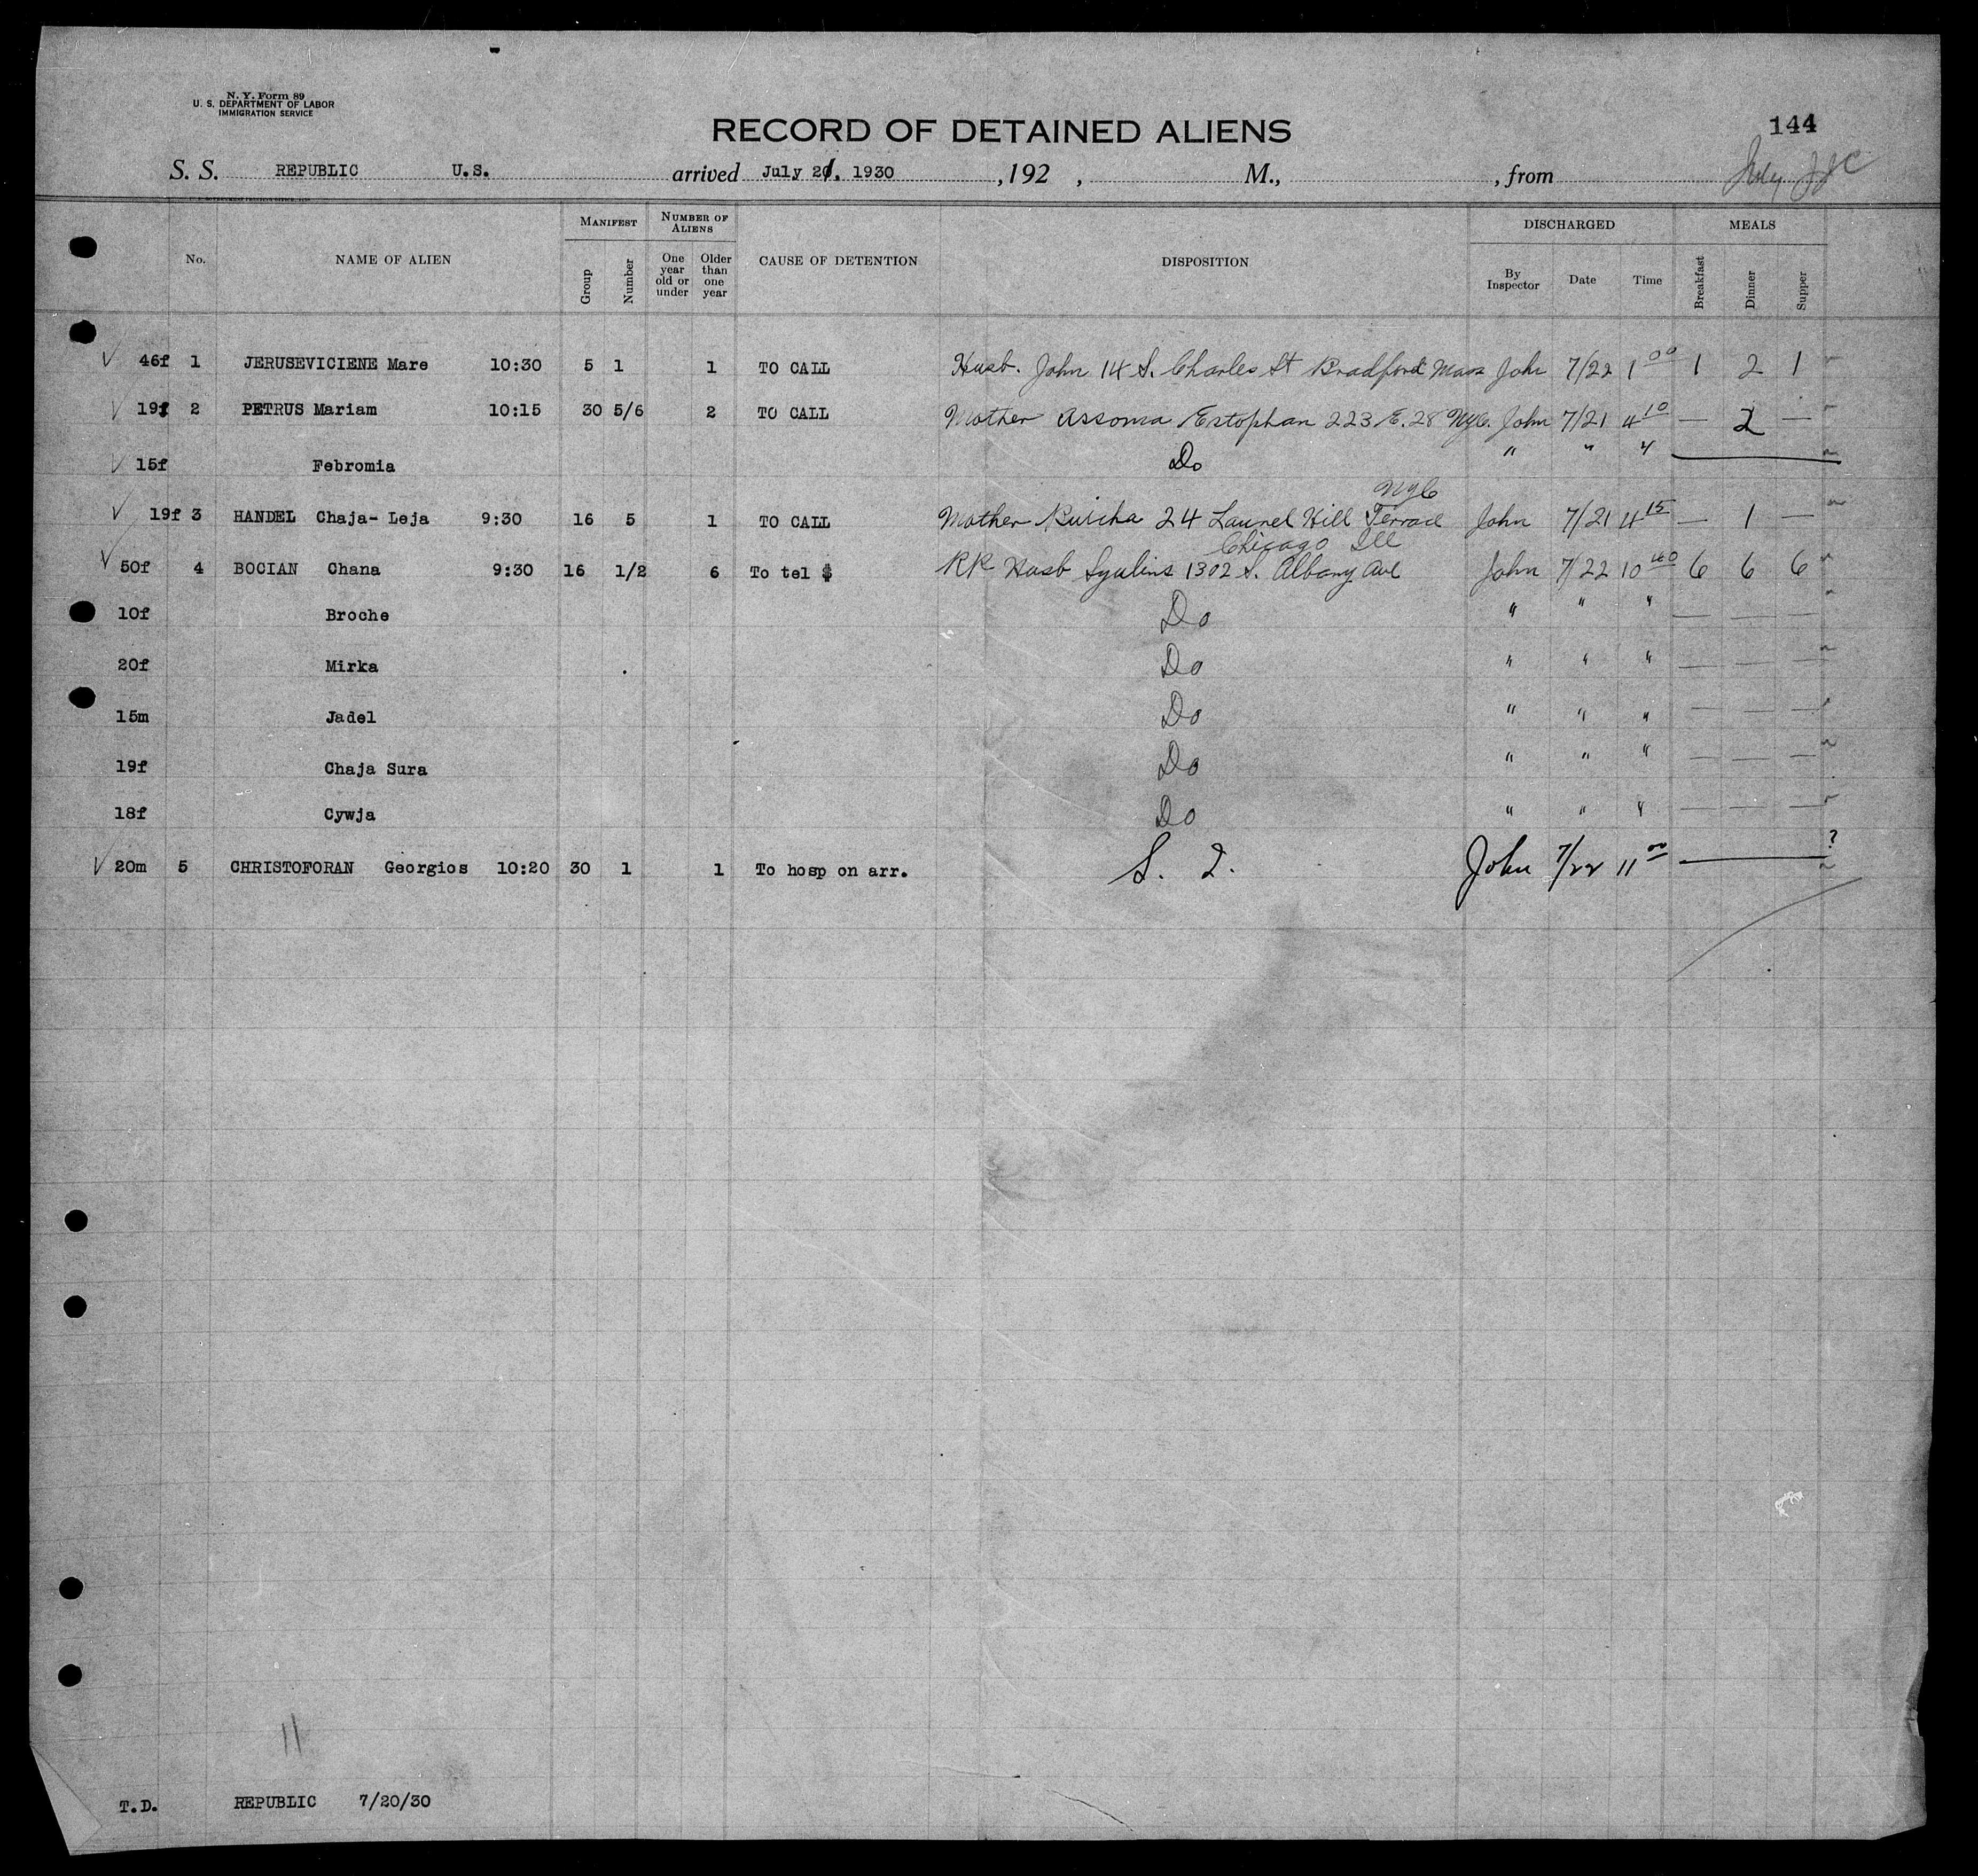 N. Y. Form 89
U. S. DEPARTMENT OF LABOR
IMMIGRATION SERVICE
RECORD OF DETAINED ALIENS
144
S. S. REPUBLIC U.S. arrived July 21, 1930 , 192 , M., , from
July
No. NAME OF ALIEN MANIFEST Group Number NUMBER OF ALIENS One year old or under Older than one year CAUSE OF DETENTION DISPOSITION DISCHARGED By Inspector Date Time MEALS Breakfast Dinner Supper
46f 1 JERUSEVICIENE Mare 10:30 5 1 1 TO CALL Husb. John 14 S. Charles St Bradford Mass John 7/22 1 00 1 2 1
19f 2 PETRUS Mariam 10:15 30 5/6 2 TO CALL Mother Assoma Estophan 223 E. 28 NYC. John 7/21 4 10 — 2 —
15f Febromia Do " " "
NYC
19f 3 HANDEL Chaja- Leja 9:30 16 5 1 TO CALL Mother 24 Laurel Hill Terrace John 7/21 4 15 — 1 —
Chicago Ill
50f 4 BOCIAN Chana 9:30 16 1/2 6 To tel $ RR Husb 1302 S. Albany Ave John 7/22 10 40 6 6 6
10f Broche Do " " " — — —
20f Mirka Do " " " — — —
15m Jadel Do " " " — — —
19f Chaja Sura Do " " " — — —
18f Cywja Do " " " — — —
20m 5 CHRISTOFORAN Georgios 10:20 30 1 1 To hosp on arr. S. I. John 7/22 11 00 ?
11
T.D. REPUBLIC 7/20/30